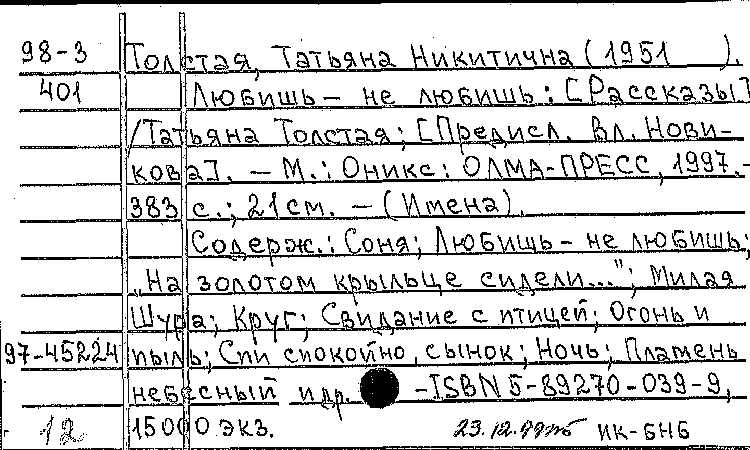 98-3 Толстая, Татьяна Никитична (1951    ).
401 Любишь - не любишь: [Рассказы]
/Татьяна Толстая; [Предисл. Вл. Нови-
кова]. - М.: Оникс: ОЛМА-ПРЕСС, 1997. -
383 с.; 21см. - (Имена).
Содерж.: Соня; Любишь - не любишь;
„На золотом крыльце сидели..."; Милая
Шура; Круг; Свидание с птицей; Огонь и
97-45224 пыль; Спи спокойно, сынок; Ночь; Пламень
небесный и др. -ISBN 5-89270-039-9,
12 15000 экз. 23.12. ИК-БНБ